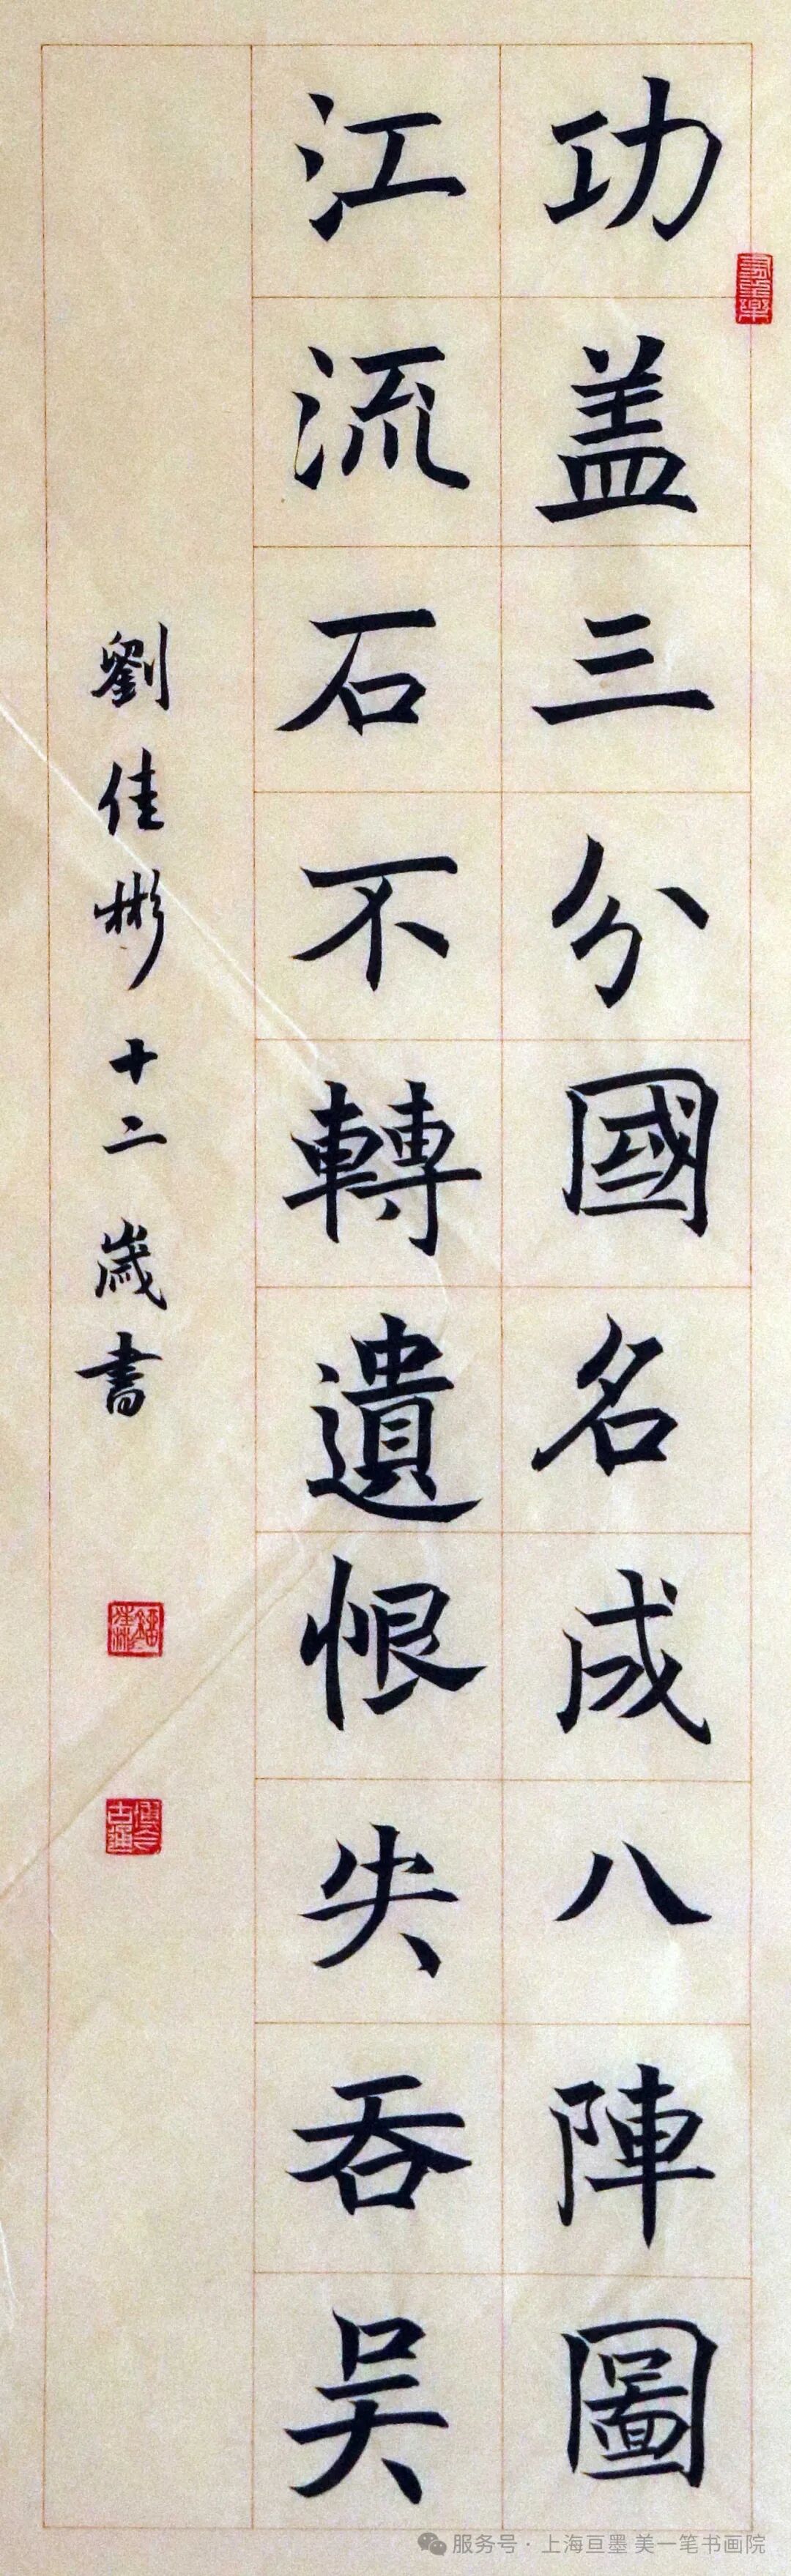 功盖三分國名成八陣圖
江流石不轉遺恨失吞吴
劉佳彬十二歲書
服务号·上海亘墨美一笔书画院